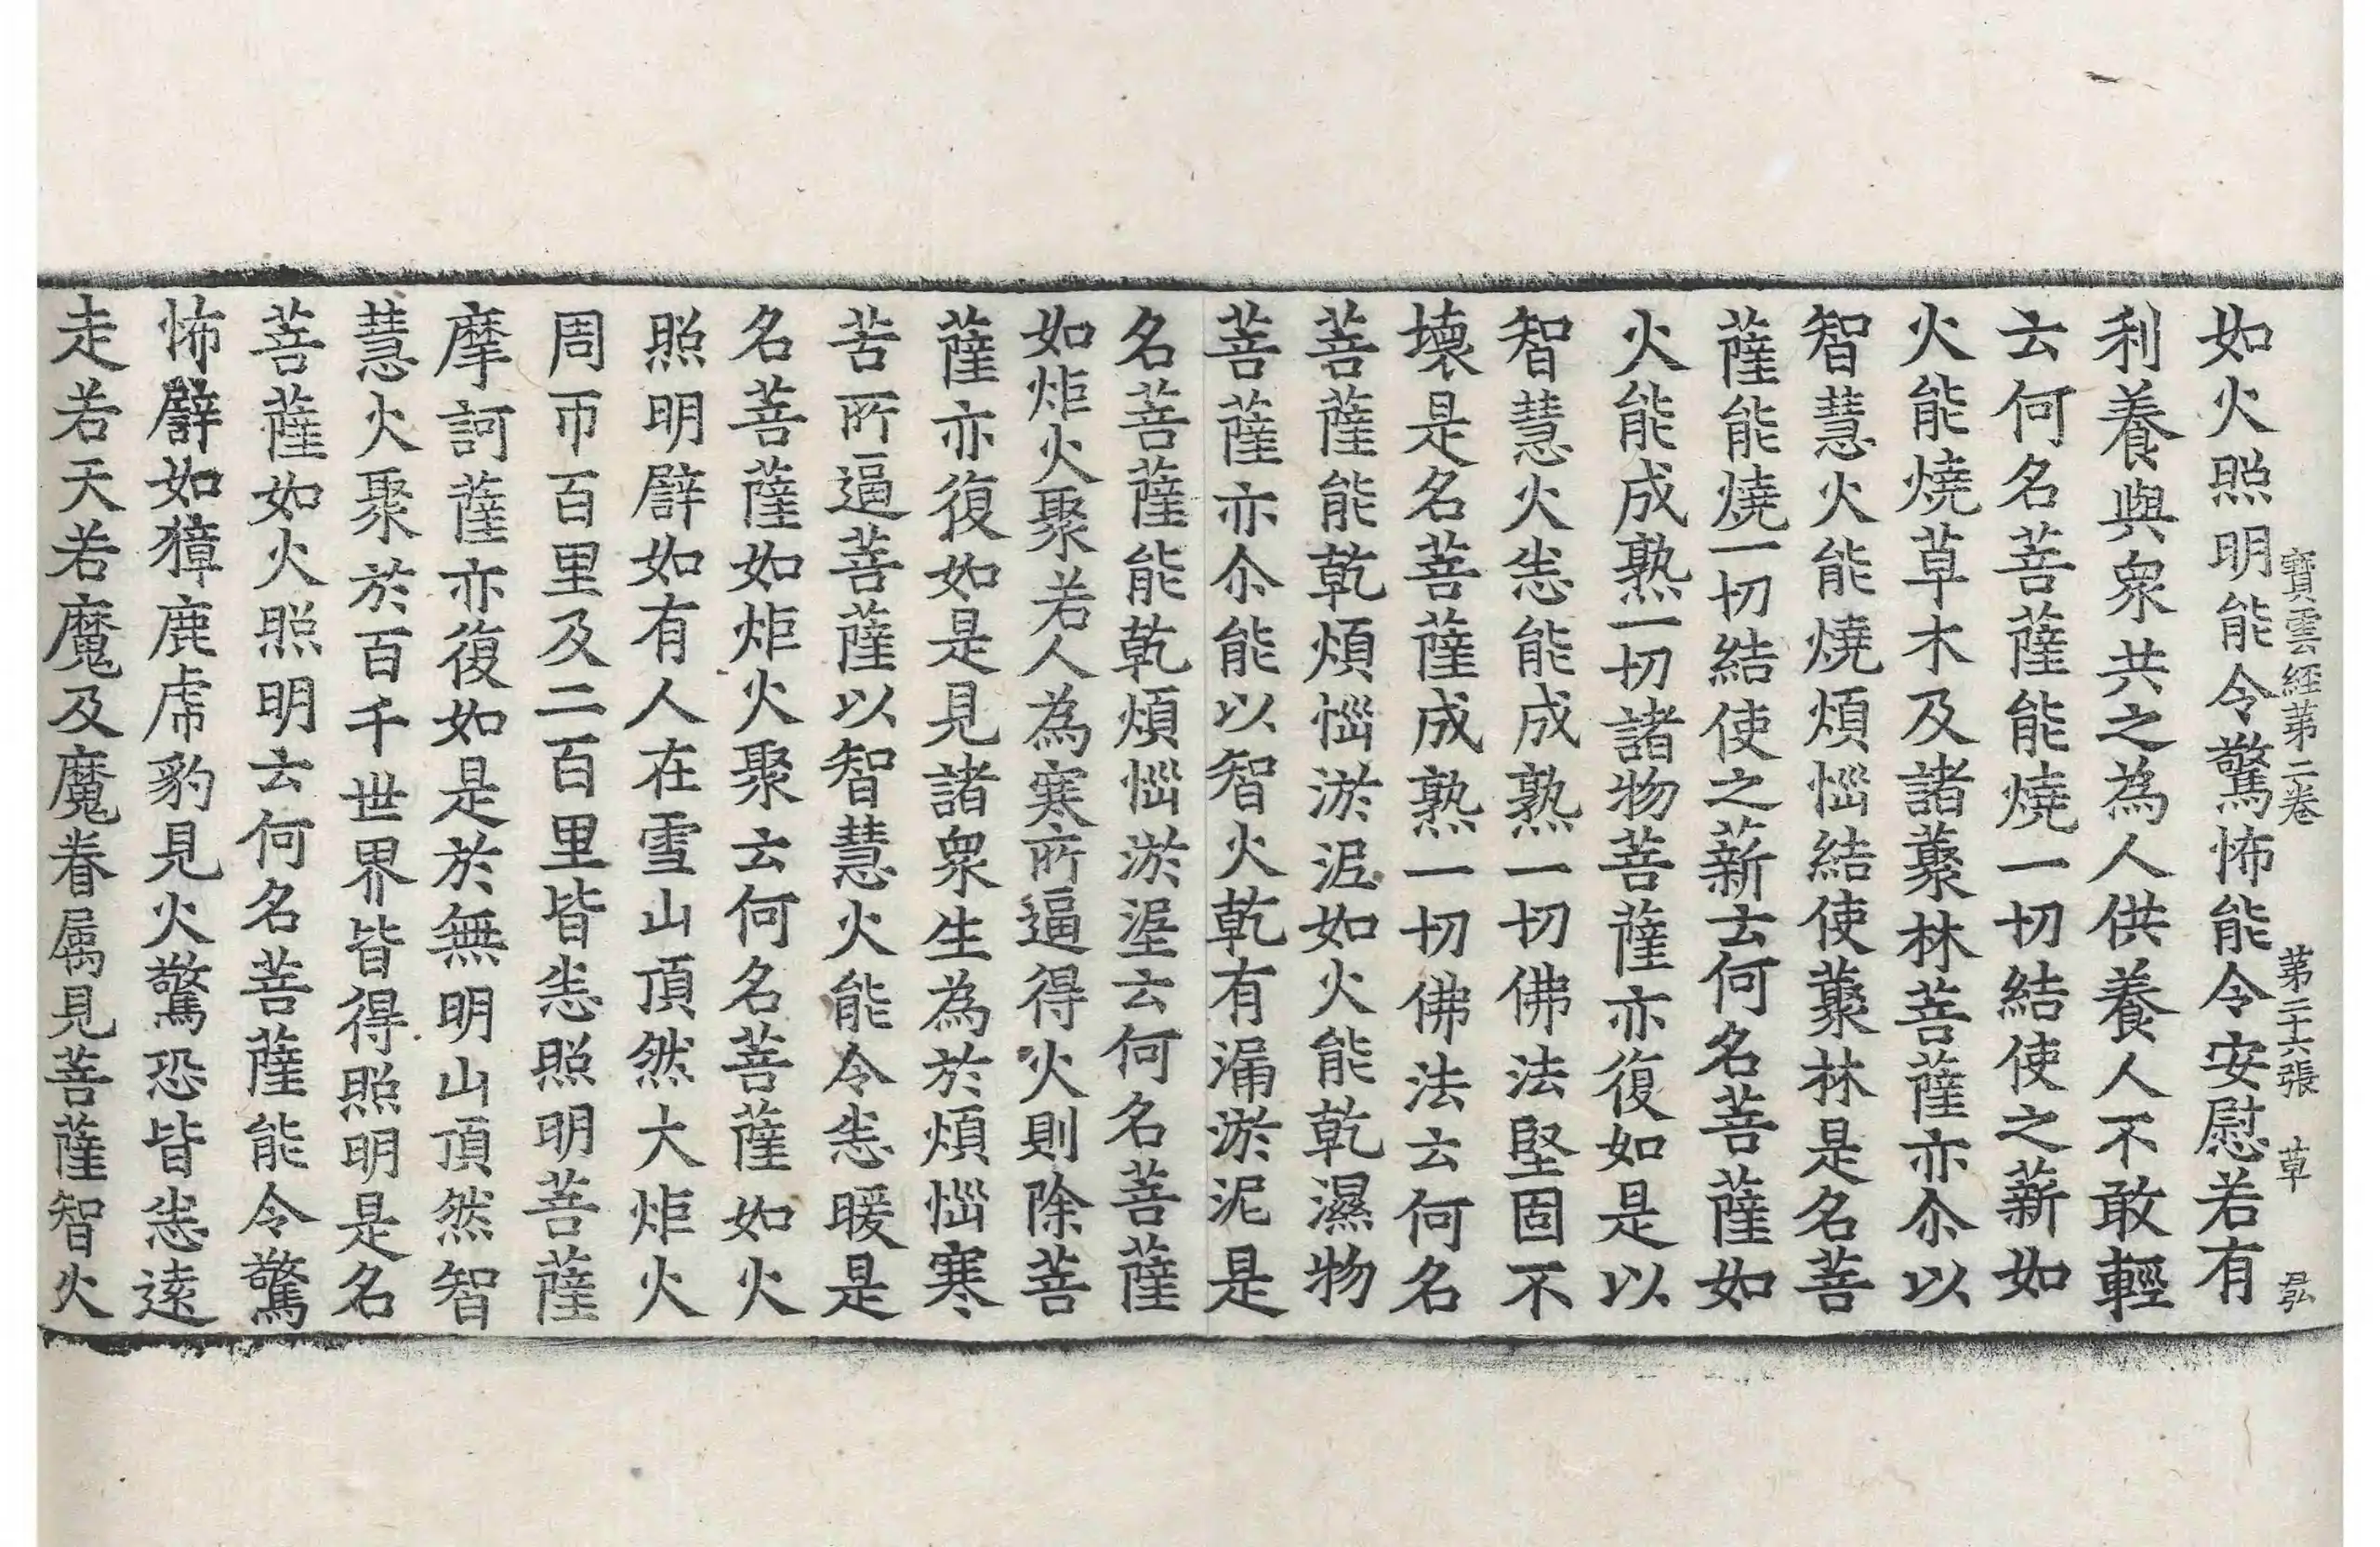 寶雲經第二卷　第二十六張　草　弘
如火照明能令驚怖能令安慰若有
利養與衆共之為人供養人不敢輕
云何名菩薩能燒一切結使之薪如
火能燒草木及諸藂林菩薩亦尒以
智慧火能燒煩惱結使藂林是名菩
薩能燒一切結使之薪云何名菩薩如
火能成熟一切諸物菩薩亦復如是以
智慧火恙能成熟一切佛法堅固不
壞是名菩薩成熟一切佛法云何名
菩薩能乾煩惱淤泥如火能乾濕物
菩薩亦尒能以智火乾有漏淤泥是
名菩薩能乾煩惱淤泥云何名菩薩
如炬火聚若人為寒所逼得火則除菩
薩亦復如是見諸衆生為於煩惱寒
苦所逼菩薩以智慧火能令恙暖是
名菩薩如炬火聚云何名菩薩如火
照明譬如有人在雪山頂然大炬火
周帀百里及二百里皆恙照明菩薩
摩訶薩亦復如是於無明山頂然智
慧火聚於百千世界皆得照明是名
菩薩如火照明云何名菩薩能令驚
怖譬如獐鹿虎豹見火驚恐皆恙遠
走若天若魔及魔眷屬見菩薩智火